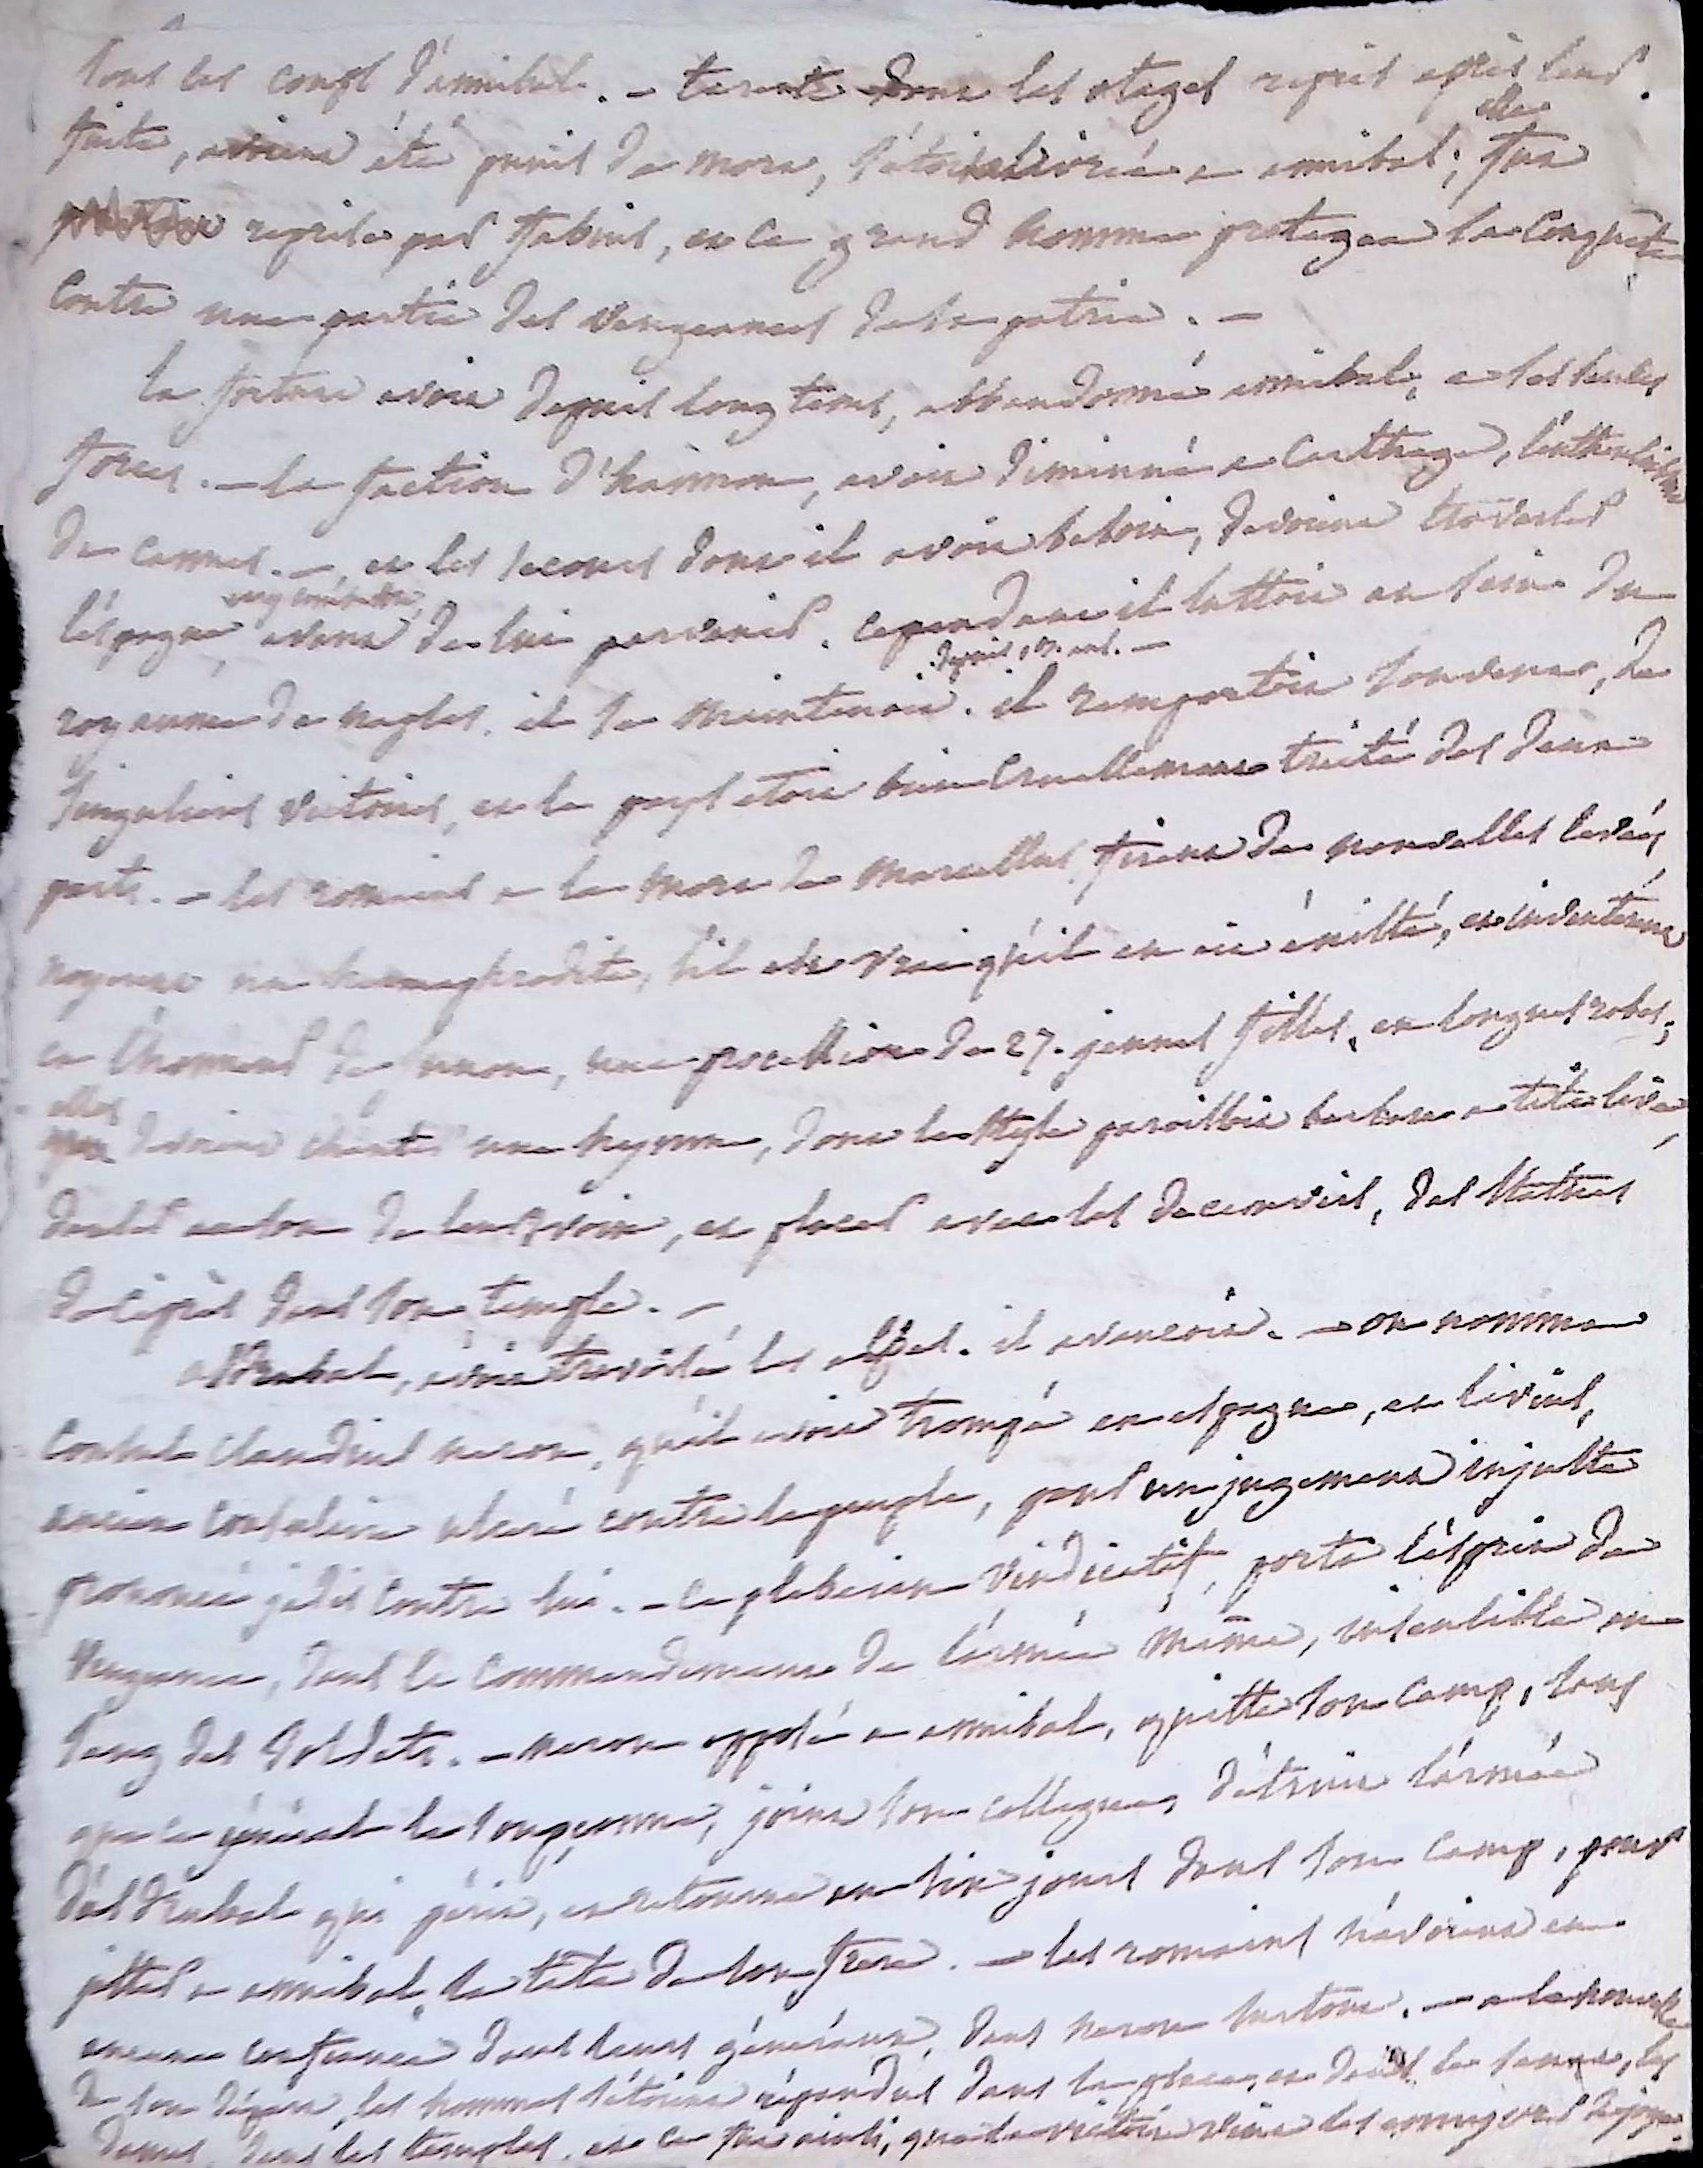 tous les coups d'annibal. - tarente dont les otages repris après leur
fuite, avoient été punis de mort, s'étoit livrée a annibal; elle fut
reprise par fabius, et ce grand homme protegea la conquête
contre une partie des vengeances de sa patrie. -
la fortune avoit depuis long tems, abbandonné annibal, a ses seules
forces. - la faction d'hannon, avoit diminué a Carthage, l'enthousiasme
de cannes. - et les secours dont il avoit besoin, devoient traverser
l'espagne, avant de lui parvenir. cependant il luttoit au sein du
royaume de naples. il se maintenoit depuis 13. ans. - il remportoit souvent, de
singulieres victoires, et le pays etoit bien cruellement traité des deux
parts. - les romains a la mort de marcellus, firent de nouvelles levées
noyerent un hermaphrodite, s'il est vrai qu'il en ait éxisté, et inventerent
en l'honneur de junon, une procession de 27. jeunes filles, en longues robes;
elles devoient chanter une hymne, dont le style paroissoit barbare a tite live,
danser au son de leur voix, et placer avec les decemvirs, des statues
de ciprès dans son temple. -
asdrubal, avoit traversé les alpes. il avançoit. - on nomma
consuls claudius neron, qu'il avoit trompé en espagne, et livius,
ancien consulaire ulceré contre le peuple, par un jugement injuste
prononcé jadis contre lui. - ce plebeien vindicatif, porta l'esprit de
vengeance, dans le commandement de l'armée même, insensible au
sang des soldats. - neron opposé a annibal, quitte son camp, sans
que ce général le soupçonne, joint son collegue, détruit l'armée
d'asdrubal qui périt, et retourne en six jours dans son camp, pour
jetter a annibal, la tête de son frere. - les romains n'avoient en
aucune confiance dans leurs généraux, dans neron surtout. - a la nouvelle
de son départ, les hommes s'étoient répandus dans la place, et dans le senat, les
dames, dans les temples, et ce fut ainsi, que la victoire vint les